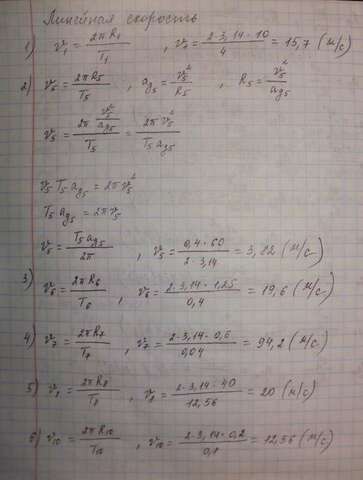 Линейная скорость
1) v₁ = 2πR₁/T₁ , v₁ = 2·3,14·10/4 = 15,7 (м/с)
2) v₅ = 2πR₅/T₅ , aց₅ = v₅²/R₅ , R₅ = v₅²/aց₅
v₅ = 2π v₅²/aց₅/T₅ = 2πv₅²/T₅aց₅
v₅T₅aց₅ = 2πv₅²
T₅aց₅ = 2πv₅
v₅ = T₅aց₅/2π , v₅ = 0,4·60/2·3,14 = 3,82 (м/с)
3) v₆ = 2πR₆/T₆ , v₆ = 2·3,14·1,25/0,4 = 19,6 (м/с)
4) v₇ = 2πR₇/T₇ , v₇ = 2·3,14·0,6/0,04 = 94,2 (м/с)
5) v₈ = 2πR₈/T₈ , v₈ = 2·3,14·40/12,56 = 20 (м/с)
6) v₁₀ = 2πR₁₀/T₁₀ , v₁₀ = 2·3,14·0,2/0,1 = 12,56 (м/с)